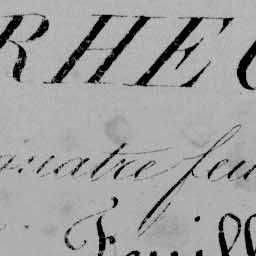 RHE
quatre feu
Feuill